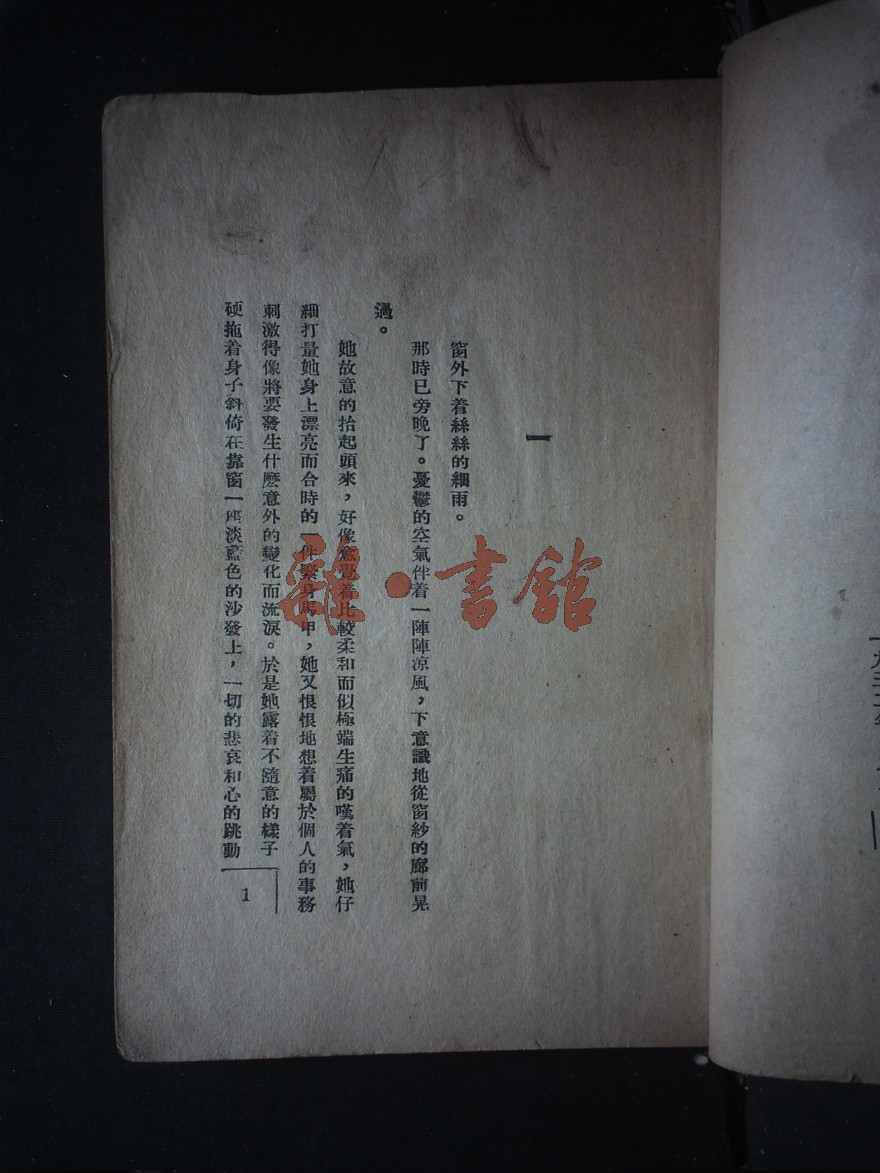 一
窗外下着絲絲的細雨。
那時已旁晚了。憂鬱的空氣伴着一陣陣凉風，下意識地從窗紗的廊前晃
過。
她故意的抬起頭來，好像愈覺着比較柔和而似極端生痛的嘆着氣，她仔
細打量她身上漂亮而合時的一件緊身馬甲，她又恨恨地想着屬於個人的事務
刺激得像將要發生什麽意外的變化而流淚。於是她露着不隨意的樣子
硬拖着身子斜倚在靠窗一座淡藍色的沙發上，一切的悲哀和心的跳動
1
雜·書館